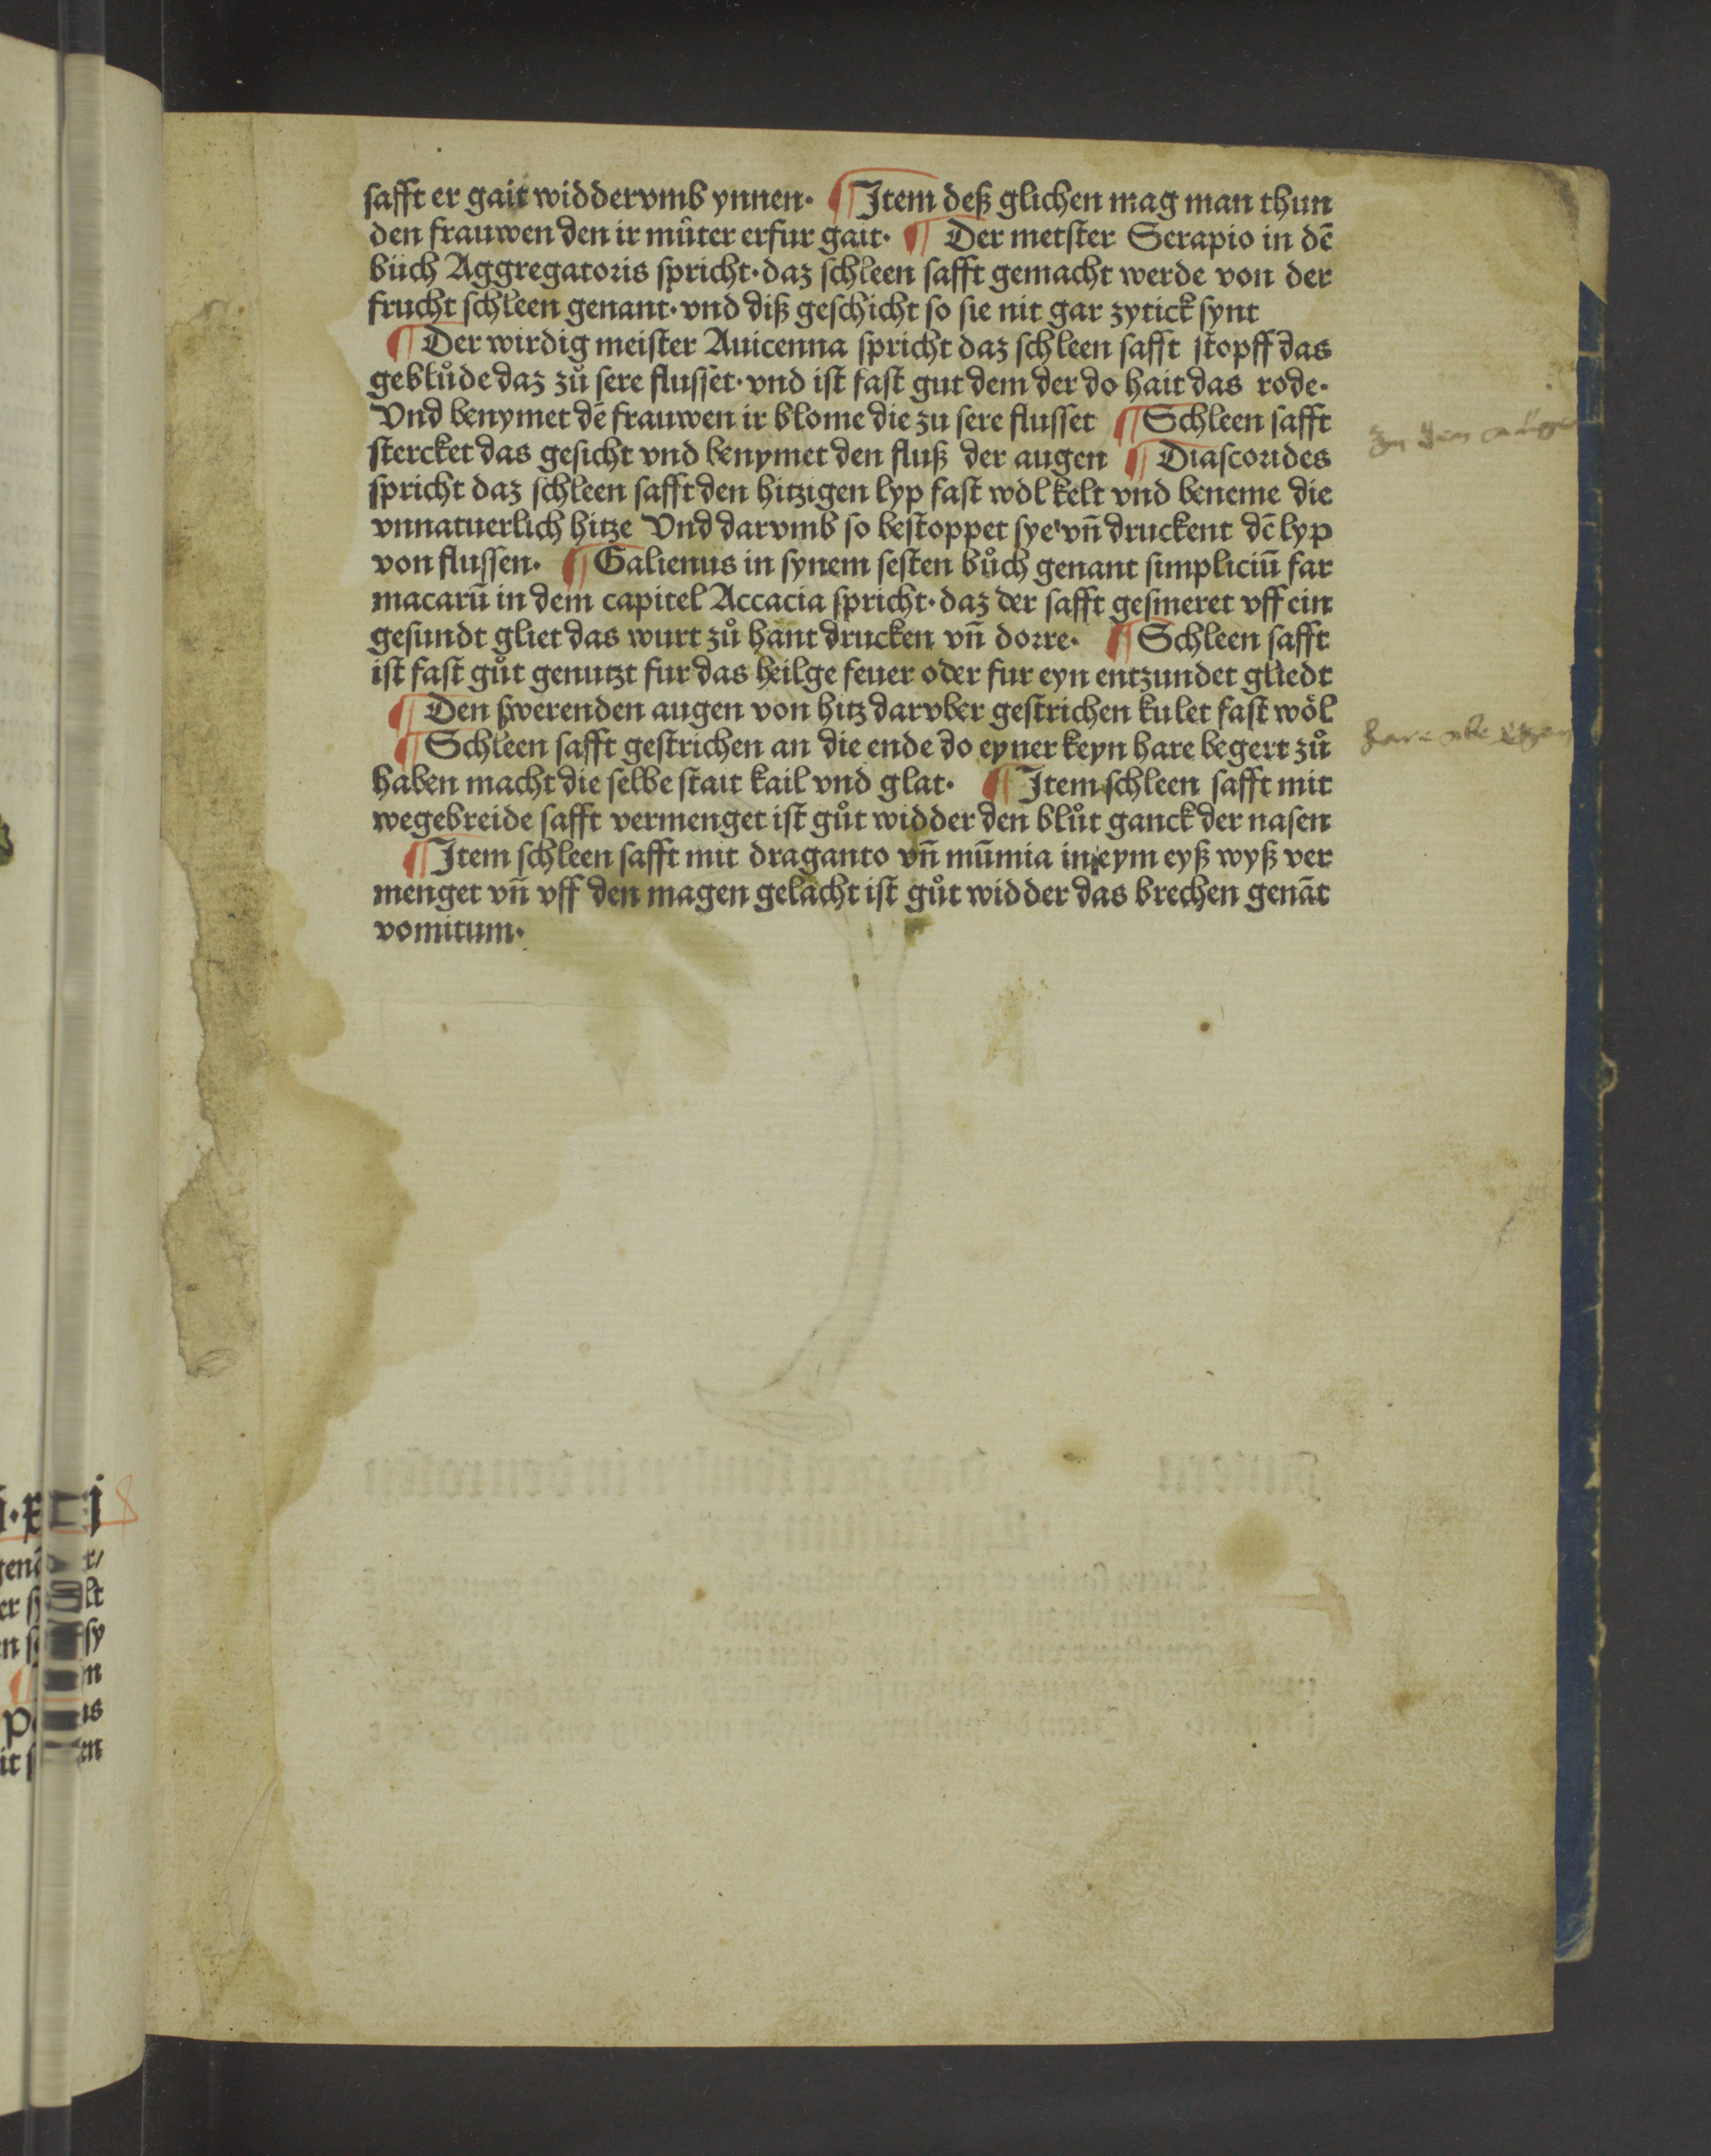 safft er gait widdervmb ynnen· ¶ Item deß glichen mag man thun
den frauwen den ir můter erfur gait· ¶ Der metster Serapio in dē
bůch Aggregatoris spricht·daz schleen safft gemacht werde von der
frucht schleen genant·vnd diß geschicht so sie nit gar zytick synt
¶ Der wirdig meister Auicenna spricht daz schleen safft stopff das
geblůde daz zů sere flusset·vnd ist fast gut dem der do hait das rode·
Vnd benymet dē frauwen ir blome die zu sere flusset ¶ Schleen safft
stercket das gesicht vnd benymet den fluß der augen ¶ Diascorides
spricht daz schleen safft den hitzigen lyp fast wol kelt vnd beneme die
vnnatuerlich hitze Vnd darvmb so bestoppet sye vn̄ druckent dē lyp
von flussen· ¶ Galienus in synem sesten bůch genant simpliciū far
macarū in dem capitel Accacia spricht·daz der safft gesmeret vff ein
gesundt gliet das wurt zů hant drucken vn̄ dorre· ¶ Schleen safft
ist fast gůt genutzt fur das heilge feuer oder fur eyn entzundet gliedt
¶ Den swerenden augen von hitz darvber gestrichen kulet fast wól
¶ Schleen safft gestrichen an die ende do eyner keyn hare begert zů
haben macht die selbe stait kail vnd glat· ¶ Item schleen safft mit
wegebreide safft vermenget ist gůt widder den blůt ganck der nasen
¶ Item schleen safft mit draganto vn̄ mūmia in eym eyß wyß ver
menget vn̄ vff den magen gelacht ist gůt widder das brechen genāt
vomitum·
zu den augen